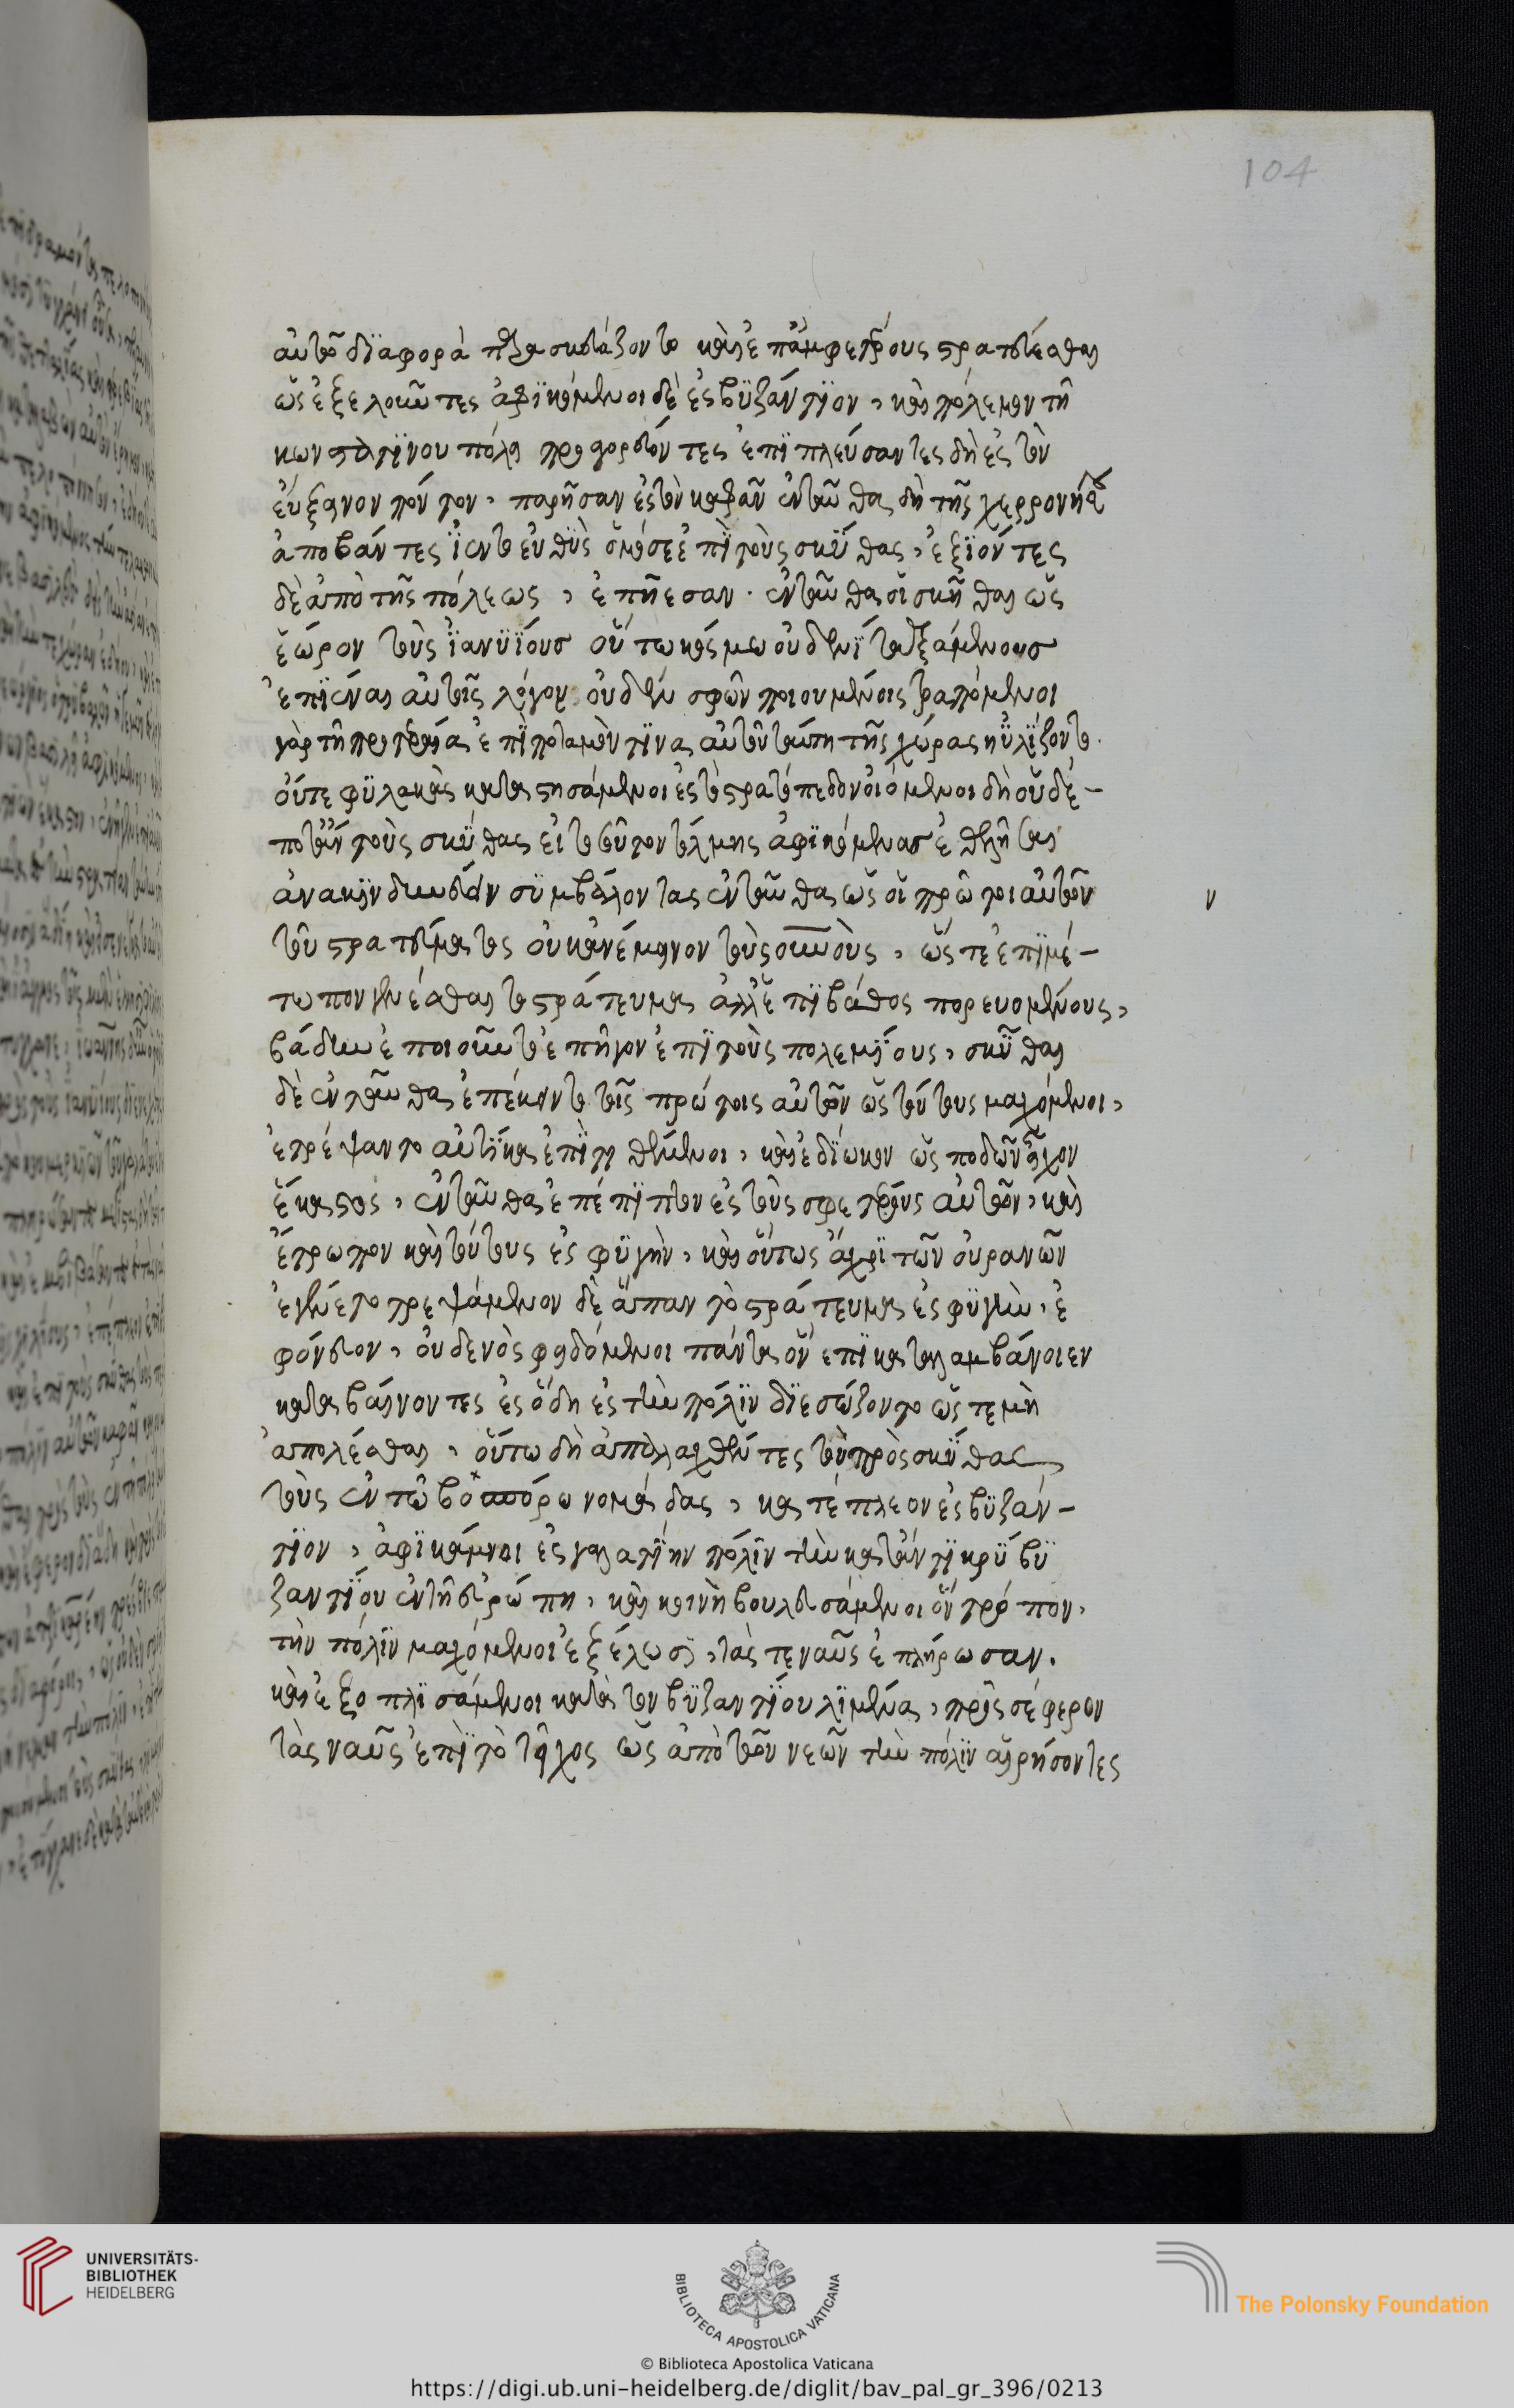 104
αὐτῶ διαφορὰ παρεσκευάζοντο καὶ ἐπ' ἀμφοτέρους στρατεύεσθαι
ὡς ἐξελοῦντες ἀφϊκόμενοι δὲ ἐς βϋζάντϊον, καὶ πόλεμον τῆ
κωνσταντίνου πόλει προαγορεύοντες ἐπϊπλεύσαντες δὴ ἐς τὸν
εὔξεινον πόντον, παρῆσαν ἐς τὸν καφᾶν ἐνταῦθα δὴ τῆς χερρονήσου
ἀποβάντες ἵεντο εὐθὺς ὁμόσε ἐπὶ τοὺς σκύθας, ἐξϊόντες
δὲ ἀπὸ τῆς πόλεως, ἐπῄεσαν. ἐνταῦθα οἱ σκῦθαι ὡς
ἑώρον τοὺς ἰανυΐους οὕτω κόσμω οὐδενὶ ταξαμένους
ἐπϊέναι αὐτοῖς λόγον οὐδὲν σφῶν ποιουμένοις τραπόμενοι
γὰρ τῆ προτεραία ἐπὶ ποταμόν τϊνα αὐτοῦ ταύτη τῆς χώρας ηὐλίζοντο.
οὔτε φϋλακὰς καταστησάμενοι ἐς τὸ στρατόπεδον οἰόμενοι δὴ οὐδέ-
ποτ' ἂν τοὺς σκύθας εἰς τοῦτον τόλμης ἀφϊκομένας ἐθελῆσαι
ἀνακινδυνεύειν σϋμβάλοντας ἐνταῦθα ὡς οἱ πρῶτοι αὐτῶν
ν
τοῦ στρατεύματος οὐκ ἀνέμενον τοὺς ὀπισθους, ὥστε ἐπϊμέ-
τωπον γενέσθαι τὸ στράτευμα ἀλλ' ἐπὶ βάθος πορευομένους,
βάδην ἐποιοῦντο ἐπῆγον ἐπὶ τοὺς πολεμίους, σκῦθαι
δὲ ἐνταῦθα ἐπέκειντο τοῖς πρώτοις αὐτῶν ὡς τούτους μαχόμενοι,
ἐτρέψαντο αὐτίκα ἐπϊτϊθέμενοι, καὶ ἐδίωκον ὡς ποδῶν εἶχον
ἕκαστος, ἐνταῦθα ἐπέπϊπτον ἐς τοὺς σφετέρους αὐτῶν, καὶ
ἔτρωπον καὶ τούτους ἐς φϋγὴν, καὶ οὕτως ἄχρϊ τῶν οὐραγῶν
ἐγένετο τρεψάμενον δὲ ἅπαν τὸ στράτευμα ἐς φϋγὴν, ἐ
φόνευον, οὐδενὸς φειδόμενοι πάντα ὃν ἐπϊκαταλαμβάνοιεν
καταβαίνοντες ἐς ὃ δὴ ἐς τὴν πόλιν δϊεσώζοντο ὥστε μὴ
ἀπολέσθαι, οὕτω δὴ ἀπαλαχθέντες τοὺς πρὸς σκύθας
τοὺς ἐν τῷ βοσπόρω νομάδας, κατέπλεον ἐς βϋζάν-
τϊον, ἀφϊκόμενοι ἐς γαλατίην πόλιν τὴν καταντικρὺ βϋ
ζαντίου ἐν τῆ εὐρώπη, καὶ κοινῆ βουλευσάμενοι ὃν τρόπον,
τὴν πόλιν μαχόμενοι ἐξέλωσϊ, τάς τε ναῦς ἐπλήρωσαν.
καὶ ἐξοπλισάμενοι κατὰ τὸν βϋζαντίου λϊμένα, προσέφερον
τὰς ναῦς ἐπὶ τὸ τεῖχος ὡς ἀπὸ τῶν νεῶν τὴν πόλιν αἱρήσοντες
UNIVERSITÄTS-
BIBLIOTHEK
HEIDELBERG
BIBLIOTECA APOSTOLICA VATICANA
The Polonsky Foundation
© Biblioteca Apostolica Vaticana
https://digi.ub.uni-heidelberg.de/diglit/bav_pal_gr_396/0213